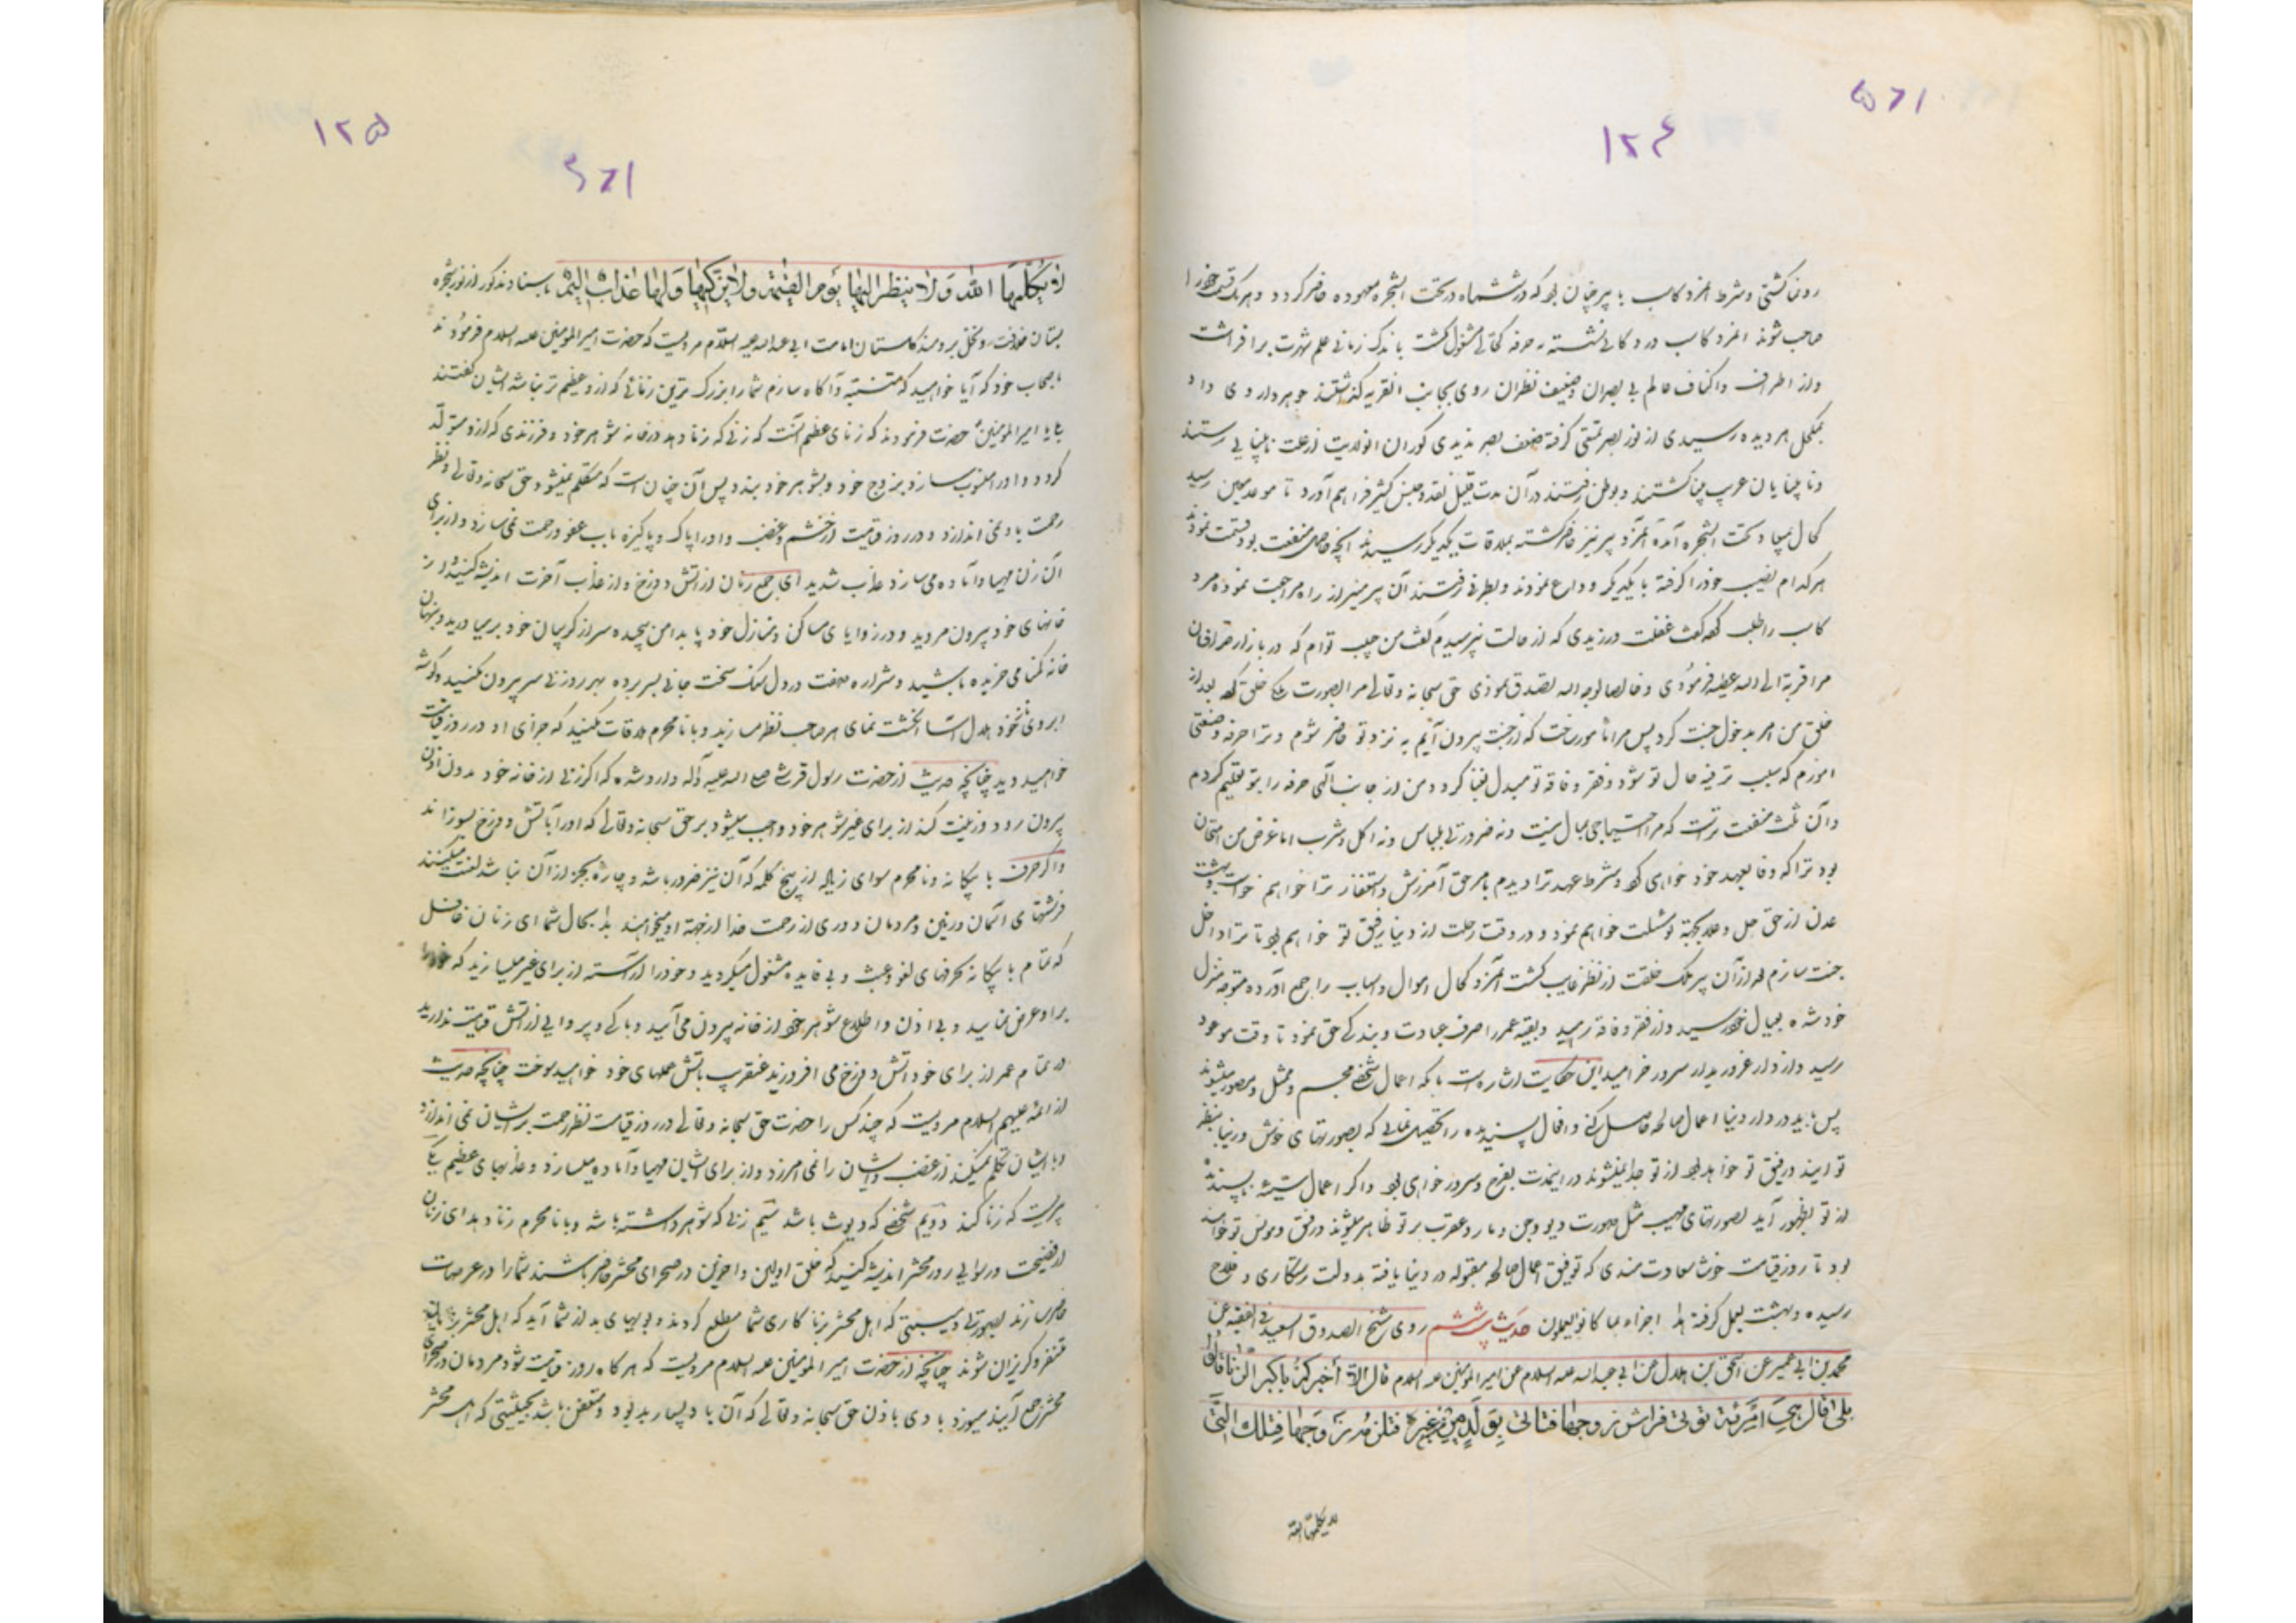 ۱۲۵
۱۲۴
رونما کشتی و شرط امرد کاسب با پیر چنان بود که در ششماه در تحت الشجره معهوده حاضر گردد و هر یک قسمت خود را
صاحب شوند امرد کاسب در دکانی نشسته به حرفه کحالی مشغول گشت باندک زمانی علم شهرت برافراشت
و از اطراف و اکناف عالم بی بصران و ضعیف نظران روی بجانب القریه گذاشتند جوهر داروی داد
بمکحل هر دیده رسیدی از نور بصر تمتعی گرفته ضعف بصر ندیدی کوران از علت نابینایی رستند
و نابینایان غریب بینا گشتند و بوطن رفتند در آن مدت قلیل نقد و جنس کثیر فراهم آورد تا موعد معین رسید
کحال بمیعاد تحت الشجره آمده امرد پیر نیز حاضر گشته بملاقات یکدیگر رسیدند آنچه حاصل منفعت بود قسمت نمودند
هر کدام نصیب خود را گرفته با یکدیگر وداع نمودند و بطرفی رفتند آن پیر نیز از راه مراجعت نموده مرد
کاسب را طلب کرده گفت غفلت ورزیدی که از حالت نپرسیدم گفت من توام که در بازار صرافان
مرا قربة الی الله عطیه فرمودی و خالصا لوجه الله تصدق نمودی حق سبحانه و تعالی مرا بصورت ملک خلق کرد بعد از
خلق من امر بدخول جنت کرد پس مرا مامور ساخت که از جنت بیرون آیم به نزد تو حاضر شوم و ترا حرفه و صنعتی
آموزم که سبب ترفیه حال تو شود و فقر و فاقه تو مبدل بغنا گردد من از جانب آلهی حرفه را بتو تعلیم کردم
و آن ثلث منفعت تراست که مرا احتیاجی بمال نیست و نه ضرورتی بلباس و نه اکل و شرب اما غرض من امتحان
بود ترا که وفا بعهد خود خواهی کرد و شرط عهد ترا دیدم بامر حق آمرزش و استغفار ترا خواهم خواست و بهشت
عدن از حق جل و علا بجهة تو مسئلت خواهم نمود و در وقت رحلت از دنیا رفیق تو خواهم بود تا ترا داخل
جنت سازم بعد از آن پیر ملک خلقت از نظر غایب گشت امرد کحال اموال و اسباب را جمع آورده متوجه منزل
خود شده بعیال خود رسید و از فقر و فاقه رهید و بقیه عمر را صرف عبادت و بندگی حق نمود تا وقت موعود
رسید و از دار غرور بدار سرور خرامید این حکایت اشاره است بآنکه اعمال شخص مجسم و ممثل و مصور میشوند
پس باید در دار دنیا اعمال صالحه حاصل کنی و افعال پسندیده را تحصیل نمائی که بصورتهای خوش در دنیا بنظر
تو آیند و رفیق تو خواهد بود از تو جدا نمیشوند در اینمدت بفرح و سرور خواهی بود و اگر اعمال سیئه ناپسند
از تو بظهور آید بصورتهای مهیب مثل صورت دیو و جن و مار و عقرب بر تو ظاهر میشوند و رفیق و مونس تو خواهند
بود تا روز قیامت خوشا سعادت مندی که توفیق اعمال صالحه مقبوله در دنیا یافته بدولت رستگاری و فلاح
رسیده و بهشت بعمل گرفته اجزاء بما کانوا یعملون حدیث ششم روی شیخ الصدوق السعید فی الفقیه عن
محمد بن ابی عمیر عن اسحق بن هلال عن ابی عبد الله علیه السلام عن امیر المومنین علیه السلام قال الا اخبرکم باکبر الزنا قالوا
بلی قال هی امرئة توطی فراش زوجها فتاتی بولد من غیره فتلزمه زوجها فتلک التی
لا یکلمها الله
لا یکلمها الله و لا ینظر الیها یوم القیمة و لا یزکیها و لها عذاب الیم باسناد مذکور از نور شجره
بستان خلافت و نخل برومند گلستان امامت ابی عبد الله علیه السلام مرویست که حضرت امیر المومنین علیه السلام فرمودند
باصحاب خود که آیا خواهید که متنبه و آگاه سازم شما را بزرگ ترین زنائی که از او عظیم تر نباشد ایشان گفتند
بلی یا امیر المومنین حضرت فرمودند که زنای عظیم آنست که زنی که زنا دهد در خانه شوهر خود و فرزندی که از او متولد
گردد و او را منسوب سازد بزوج خود و بشوهر خود بندد پس آن چنان است که متکلم نمیشود حق سبحانه و تعالی و نظر
رحمت باو نمی اندازد و در روز قیامت از خشم و غضب و او را پاک و پاکیزه باب عفو و رحمت نمی سازد و از برای
آن زن مهیا و آماده می سازد عذاب شدید ای جمع زنان از آتش دوزخ و از عذاب آخرت اندیشه کنید و از
خانهای خود بیرون مروید و در زوایای مساکن و منازل خود پا بدامن پیچیده سر از گریبان خود بر میاورید و پنهان
خانه گمنامی خزیده باشید و شراره صفت در دل سنگ سخت جانی بسر برده بهر روزنی سر بیرون مکنید و گوشه
ابروی خود هلال آسا انگشت نمای هر صاحب نظر مسازید و با نامحرم ملاقات مکنید که جزای او در روز قیامت
خواهید دید چنانچه حدیث از حضرت رسول قرشی صلی الله علیه و آله وارد شده که اگر زنی از خانه خود بدون اذن
بیرون رود و زینت کند از برای غیر شوهر خود واجب میشود بر حق سبحانه و تعالی که او را بآتش دوزخ بسوزاند
و اگر حرف با بیگانه و نامحرم سوای زیاده از پنج کلمه که آن نیز ضرور باشد و چاره بجز از آن نباشد لعنت میکنند
فرشتهای آسمان و زمین و مردمان و دوری از رحمت خدا از جهة او میخواهند بدا بحال شما ای زنان غافل
که تمام با بیگانه بحرفهای لغو و عبث و بی فایده مشغول میگردید و خود را آراسته از برای غیر میسازید که خود را
بر او عرض نمایید و بی اذن و اطلاع شوهر خود از خانه بیرون می آیید و باکی و پروایی از آتش قیامت ندارید
در تمام عمر از برای خود آتش دوزخ می افروزید عنقریب بآتش عملهای خود خواهید سوخت چنانچه حدیث
از ائمه علیهم السلام مرویست که چند کس را حضرت حق سبحانه و تعالی در روز قیامت نظر رحمت بر ایشان نمی اندازد
و با ایشان تکلم نمیکند از غضب و ایشان را نمی آمرزد و از برای ایشان مهیا و آماده میسازد و عذابهای عظیم یکی
پیریست که زنا کند دویم شخصی که دیوث باشد سیم زنی که شوهر داشته باشد و با نامحرم زنا دهد ای زنان
از فضیحت و رسوایی روز محشر اندیشه کنید که خلق اولین و آخرین در صحرای محشر حاضر باشند شما را در عرصات
حاضر سازند بصورتی و هیبتی که اهل محشر بزنا کاری شما مطلع گردند و بویهای بد از شما آید که اهل محشر
متنفر و گریزان شوند چنانچه از حضرت امیر المومنین علیه السلام مرویست که هر گاه روز قیامت شود مردمان در صحرای
محشر جمع آیند میوزد بادی باذن حق سبحانه و تعالی که آن باد بسیار بدبود و متعفن باشد بحیثیتی که اهل محشر